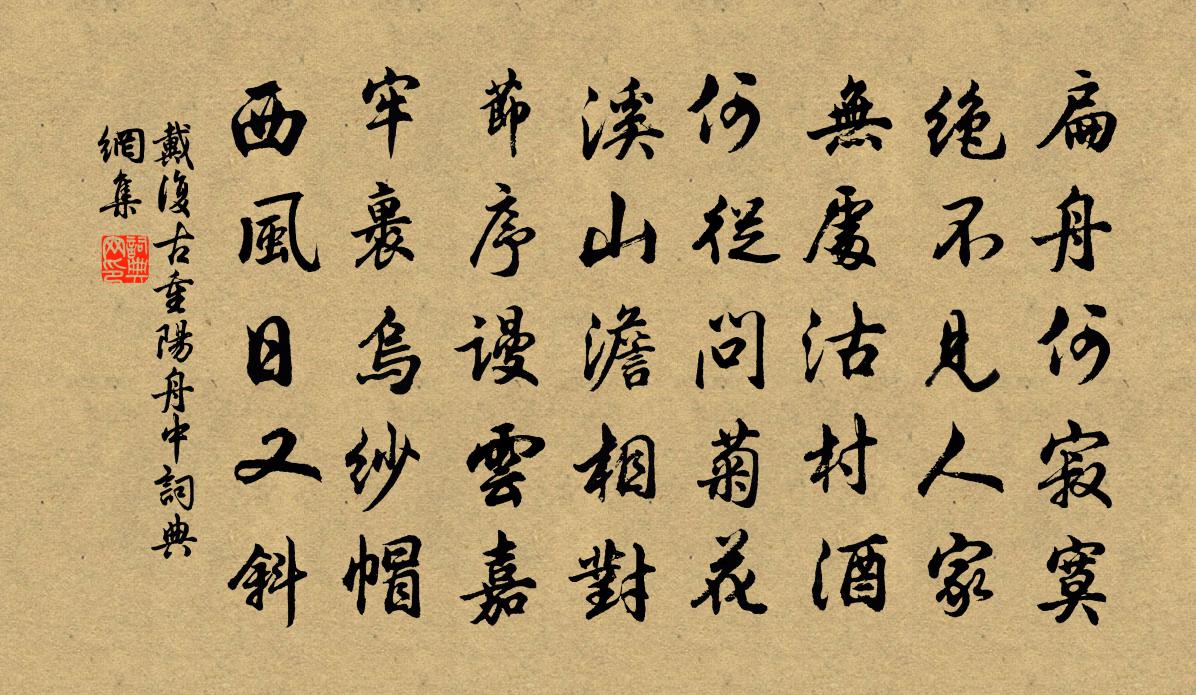 扁舟何寂寞
絕不見人家
無處沽村酒
何從問菊花
溪山澹相對
節序謾雲嘉
牢裹烏紗帽
西風日又斜
戴復古重陽舟中詞典
網集
詞典網印